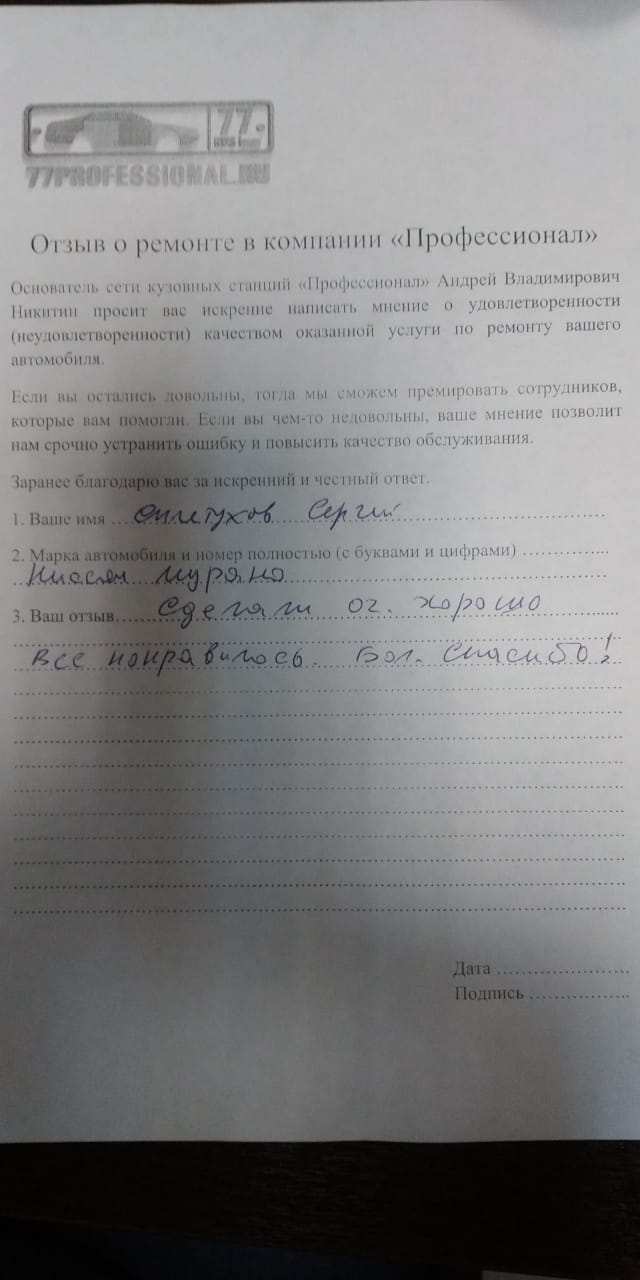 77
RUS
77PROFESSIONAL.RU
Отзыв о ремонте в компании «Профессионал»
Основатель сети кузовных станций «Профессионал» Андрей Владимирович
Никитин просит вас искренне написать мнение о удовлетворенности
(неудовлетворенности) качеством оказанной услуги по ремонту вашего
автомобиля.
Если вы остались довольны, тогда мы сможем премировать сотрудников,
которые вам помогли. Если вы чем-то недовольны, ваше мнение позволит
нам срочно устранить ошибку и повысить качество обслуживания.
Заранее благодарю вас за искренний и честный ответ.
1. Ваше имя ... Сергей
2. Марка автомобиля и номер полностью (с буквами и цифрами) ...............
Ниссан мурано
3. Ваш отзыв... Сделали оч. хорошо
Все понравилось. Бол. Спасибо!
Дата ........................
Подпись ..................